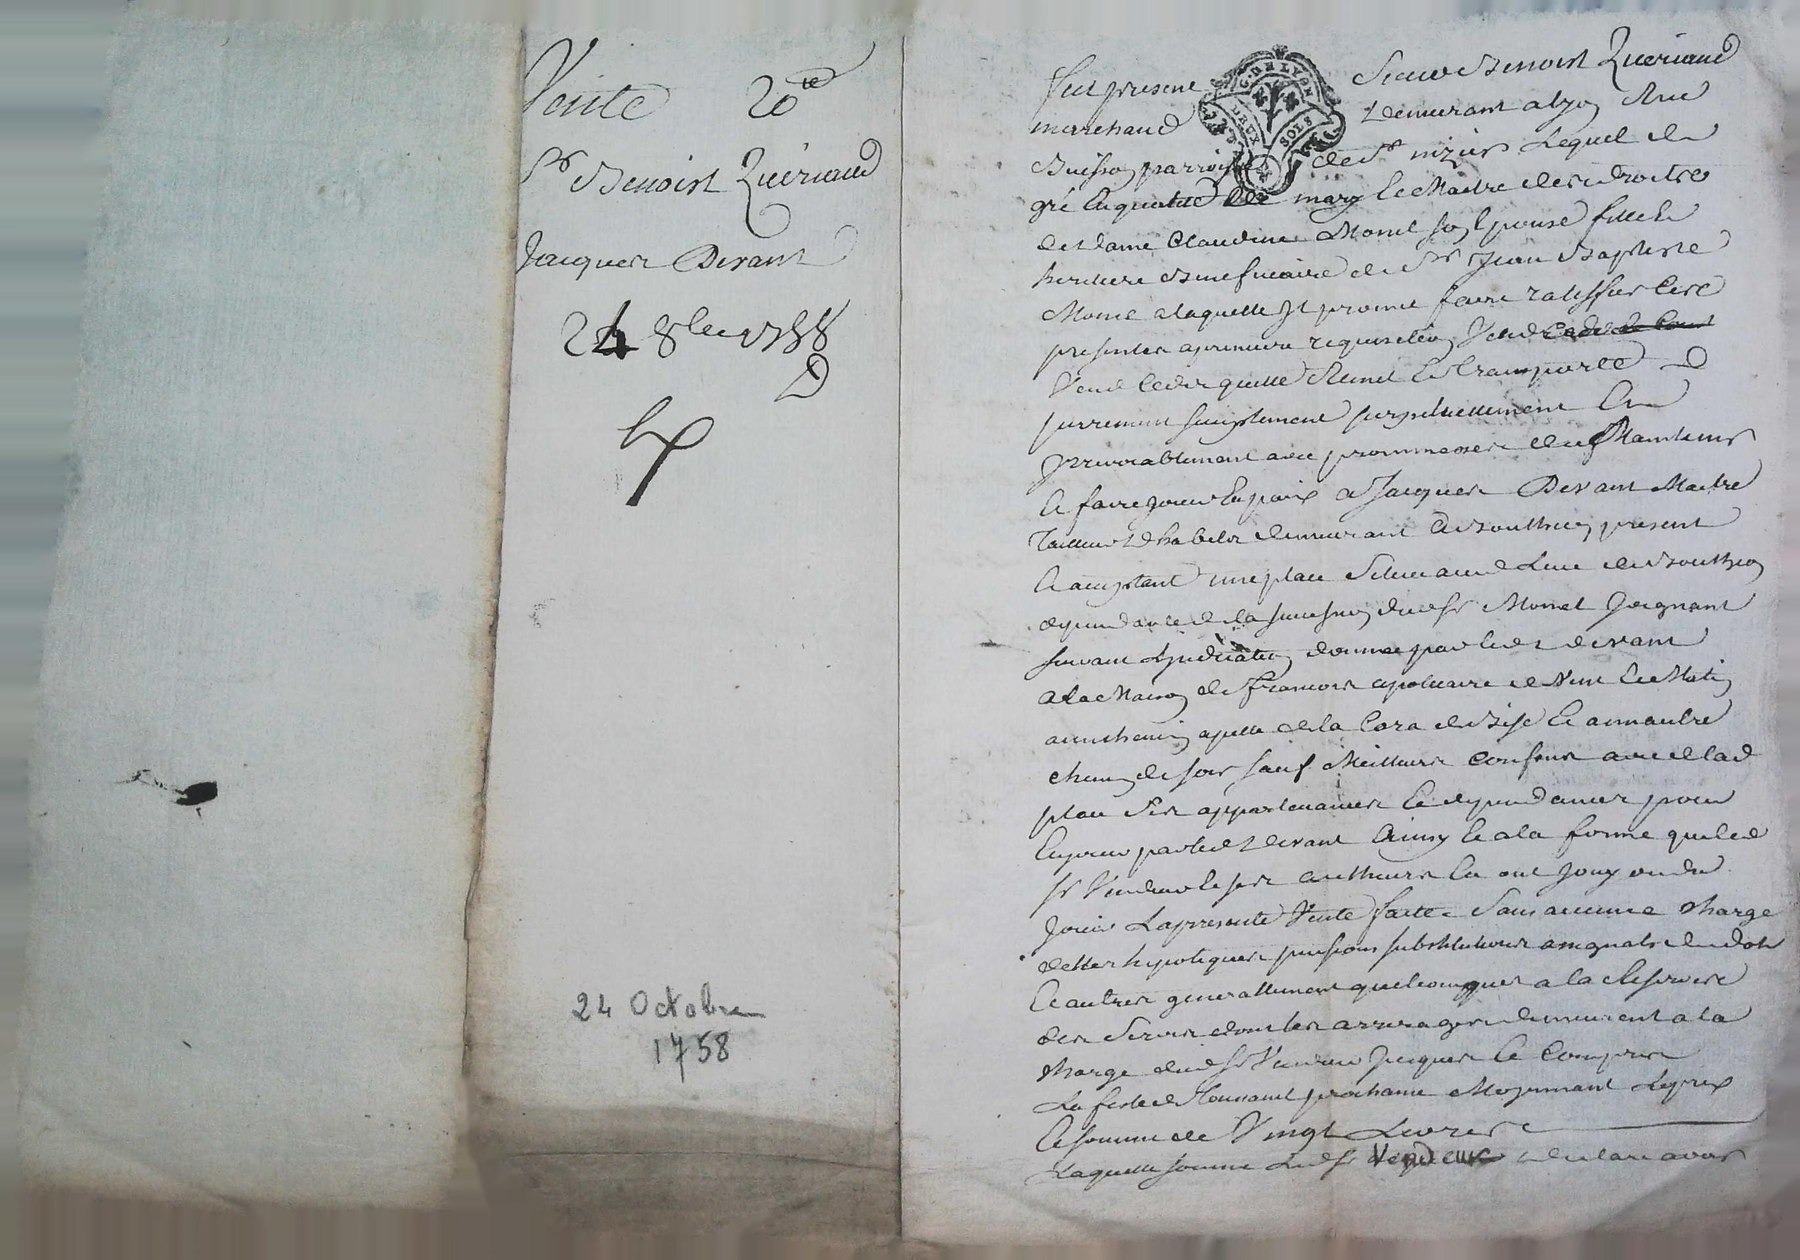 Vente 20ᵗᵗ
Sʳ Benoist Queriaud
Jacques Devant
24 8bre 1758
24 Octobre
1758
G. DE LYON
DEUX SOLS
fut present Sieur Benoist Queriaud
marchand demeurant a lyon Rue
Buisson parroisse de Sᵗ nizier Lequel de
gré En qualité de mary Et Maitre des droits
de dame Claudine Monet son Epouse fille Et
heritiere Beneficiaire de Sʳ Jean Baptiste
Monet a laquelle Il promet faire ratiffier Ces
presentes a premiere requisition Vend
Vend Cede quitte Remet Et transporte
purement simplement perpetuellement Et
Irrevocablement avec promesses de Maintenir
Et faire jouir En paix a Jacques Devant Maitre
Tailleur d'habits demeurant a present
Et acceptant une place Scituée aud Lieu de
dependante de la succession dud Sʳ Monet Joignant
suivant L'indication donnée par led devant
a la Maison de François apoticaire de Vent Et Matin
au chemin apellé de la de bise Et au autre
chemin de soir sauf Meilleurs Confins avec lad
place Ses appartenances Et dependances pour
En jouir par led devant Ainsy Et a la forme que led
Sʳ Vendeur Et ses autheurs En ont Jouy ou du
Jouir La presente Vente faite Sans aucune Charge
dettes hypoteques pensions substitutions assignats de dots
Et autres generallement quelconques a la Reserve
des Servis dont les arrerages demeurent a la
Charge dud Sʳ Vendeur Jusques Et Compris
La feste de Toussaint prochaine Moyennant Le prix
Et somme de Vingt Livres
Laquelle somme Led Sʳ Vendeur declare avoir